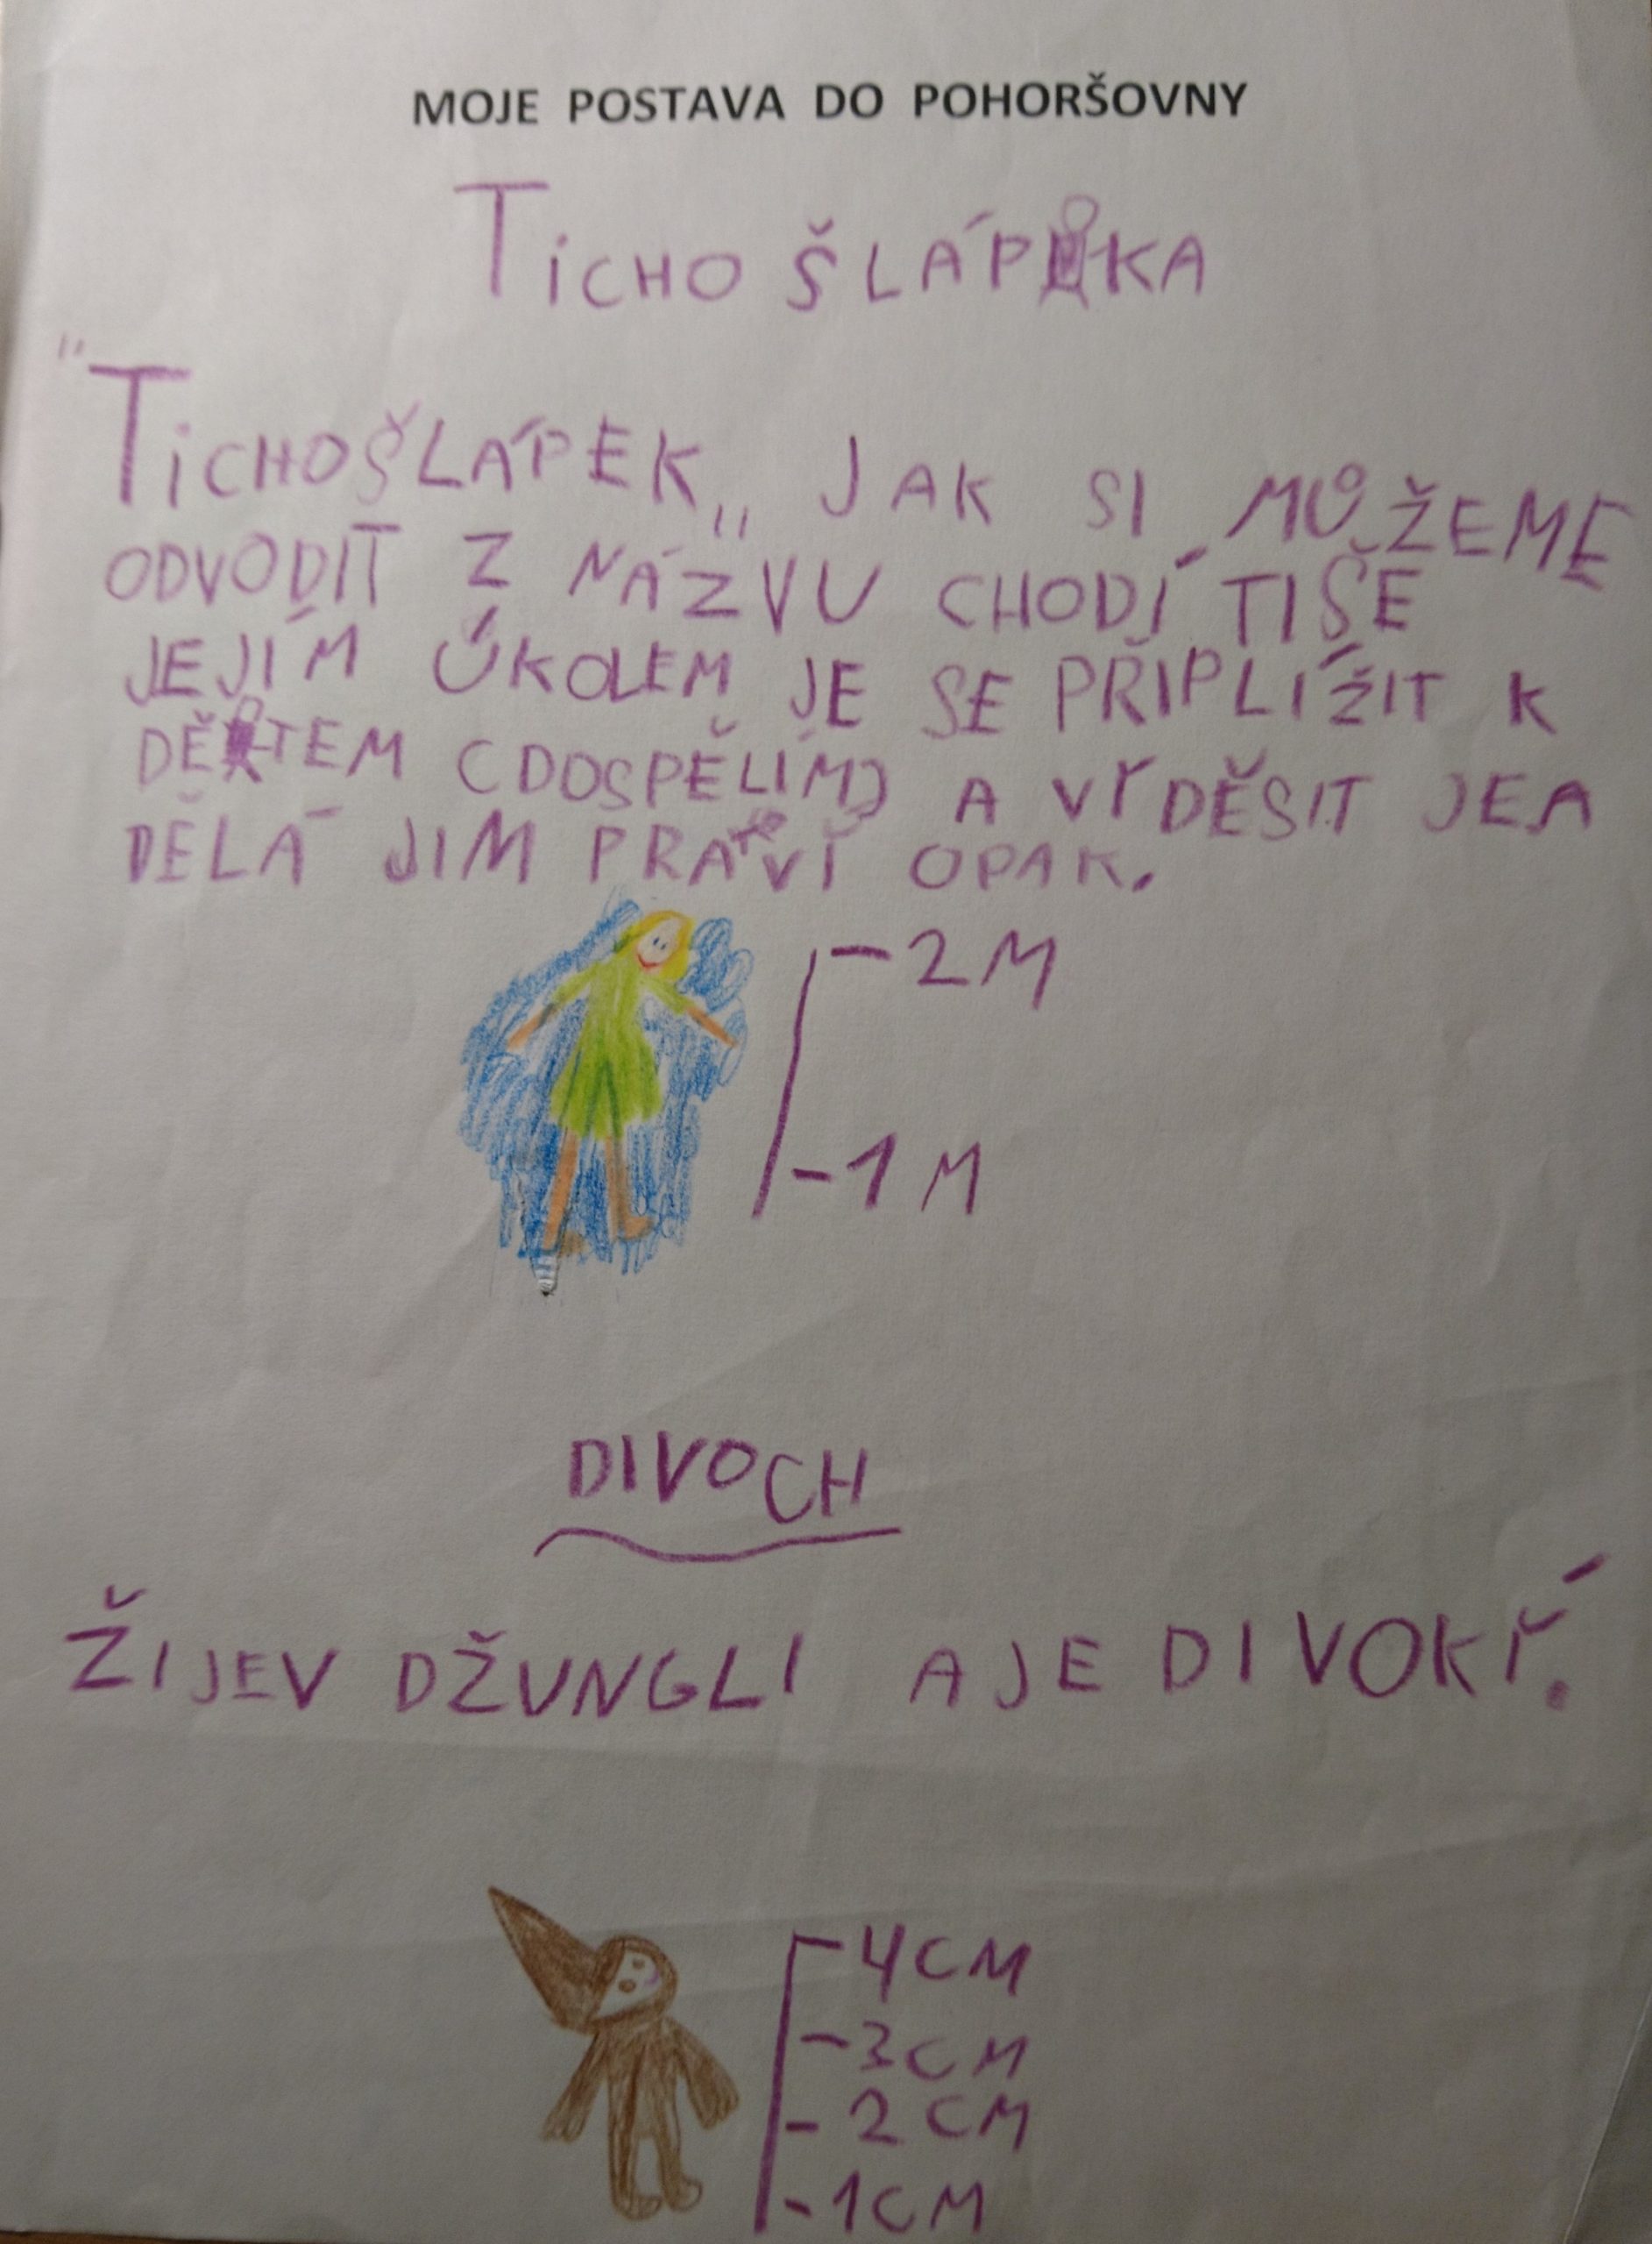 MOJE POSTAVA DO POHORŠOVNY
TICHO ŠLÁPKA
"TICHOŠLÁPEK„ JAK SI MŮŽEME
ODVODIT Z NÁZVU CHODÍ TIŠE
JEJÍM ÚKOLEM JE SE PŘIPLÍŽIT K
DĚTEM (DOSPĚLÍM) A VYDĚSIT JEA
DĚLÁ JIM PRAVÍ OPAK.
-2M
-1M
DIVOCH
ŽIJEV DŽUNGLI AJE DIVOKÍ.
-4CM
-3CM
-2CM
-1CM